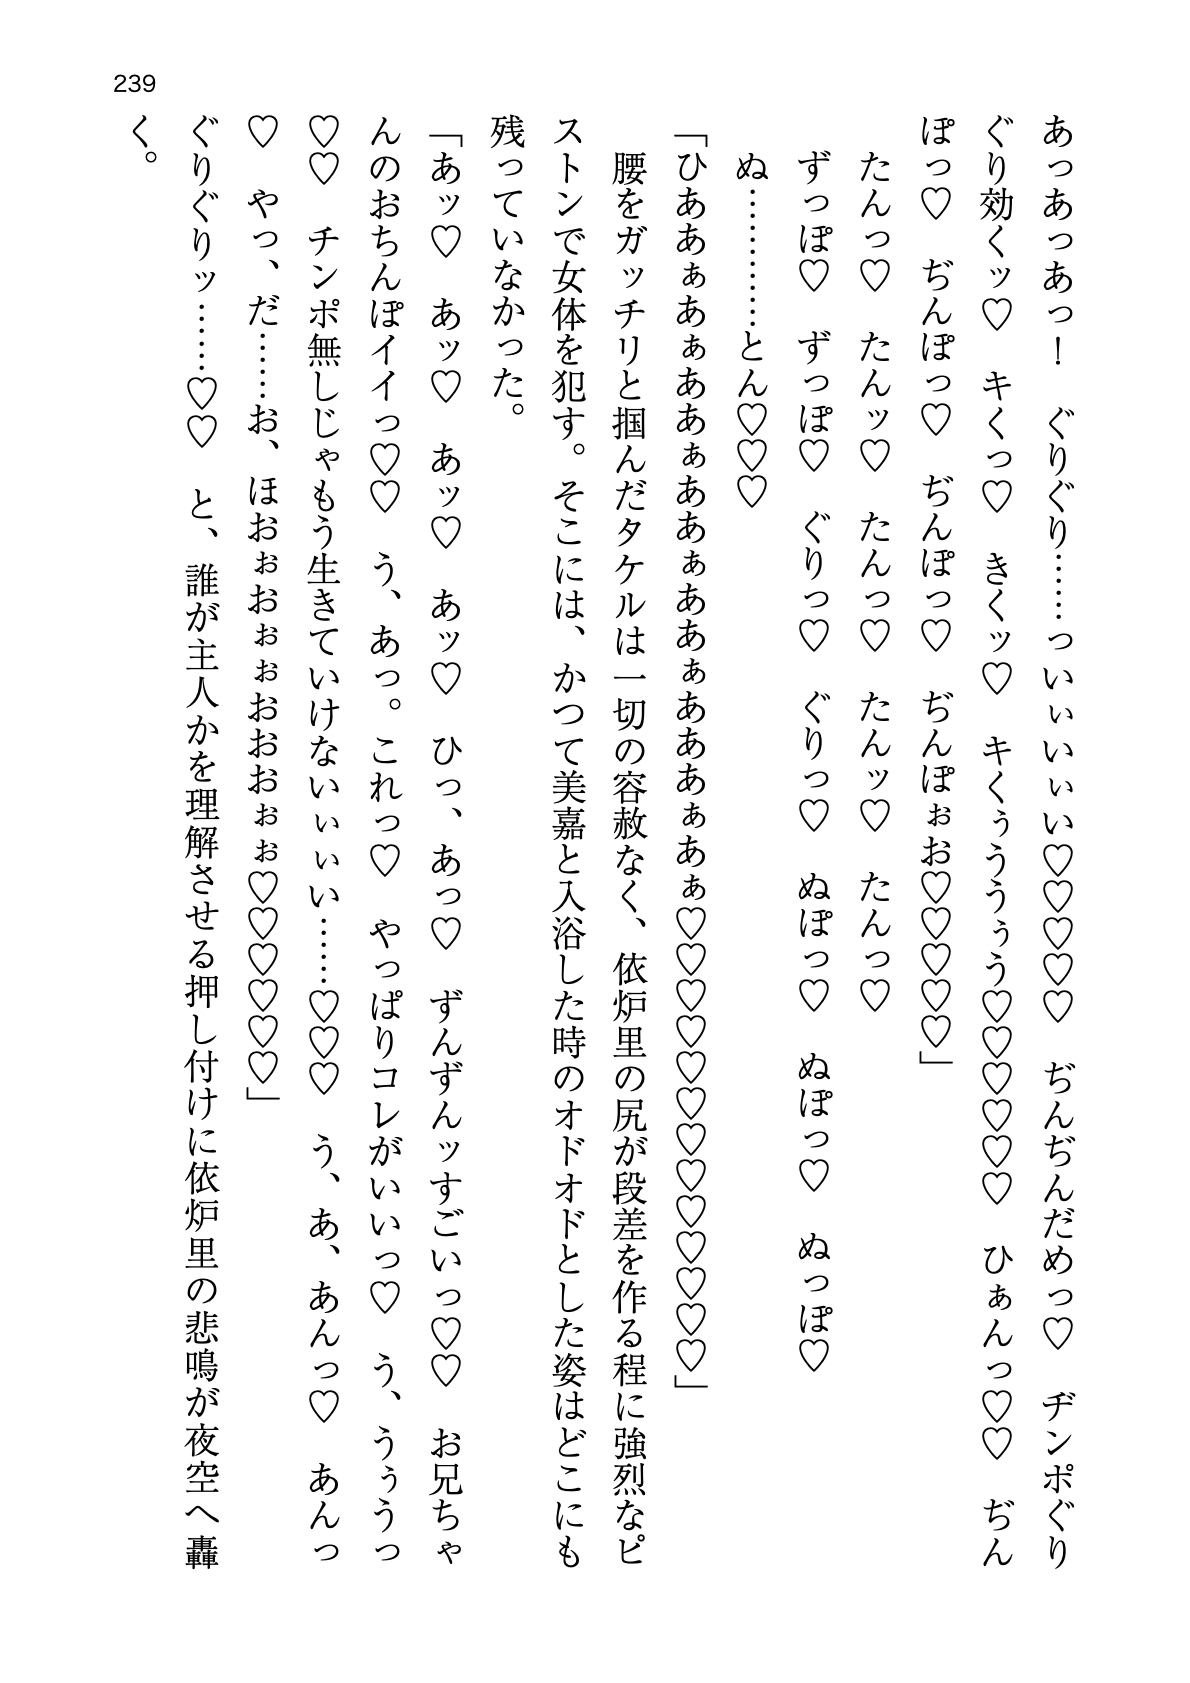 239
あっあっあっ！　ぐりぐり……っいぃいぃい♡♡♡♡♡　ぢんぢんだめっ♡　ヂンポぐり
ぐり効くッ♡　キくっ♡　きくッ♡　キくぅううぅう♡♡♡♡♡♡　ひぁんっ♡♡　ぢん
ぽっ♡　ぢんぽっ♡　ぢんぽっ♡　ぢんぽぉお♡♡♡♡♡」
　たんっ♡　たんッ♡　たんっ♡　たんッ♡　たんっ♡
　ずっぽ♡　ずっぽ♡　ぐりっ♡　ぐりっ♡　ぬぽっ♡　ぬぽっ♡　ぬっぽ♡
　ぬ…………とん♡♡♡
「ひああぁあぁああぁああぁああぁあああぁあぁ♡♡♡♡♡♡♡♡♡♡♡♡♡」
　腰をガッチリと掴んだタケルは一切の容赦なく、依炉里の尻が段差を作る程に強烈なピ
ストンで女体を犯す。そこには、かつて美嘉と入浴した時のオドオドとした姿はどこにも
残っていなかった。
「あッ♡　あッ♡　あッ♡　あッ♡　ひっ、あっ♡　ずんずんッすごいっ♡♡　お兄ちゃ
んのおちんぽイイっ♡♡　う、あっ。これっ♡　やっぱりコレがいいっ♡　う、うぅうっ
♡♡　チンポ無しじゃもう生きていけないぃぃい……♡♡♡　う、あ、あんっ♡　あんっ
♡　やっ、だ……お、ほおぉおぉぉおおおぉぉ♡♡♡♡♡♡」
ぐりぐりッ……♡♡　と、誰が主人かを理解させる押し付けに依炉里の悲鳴が夜空へ轟
く。